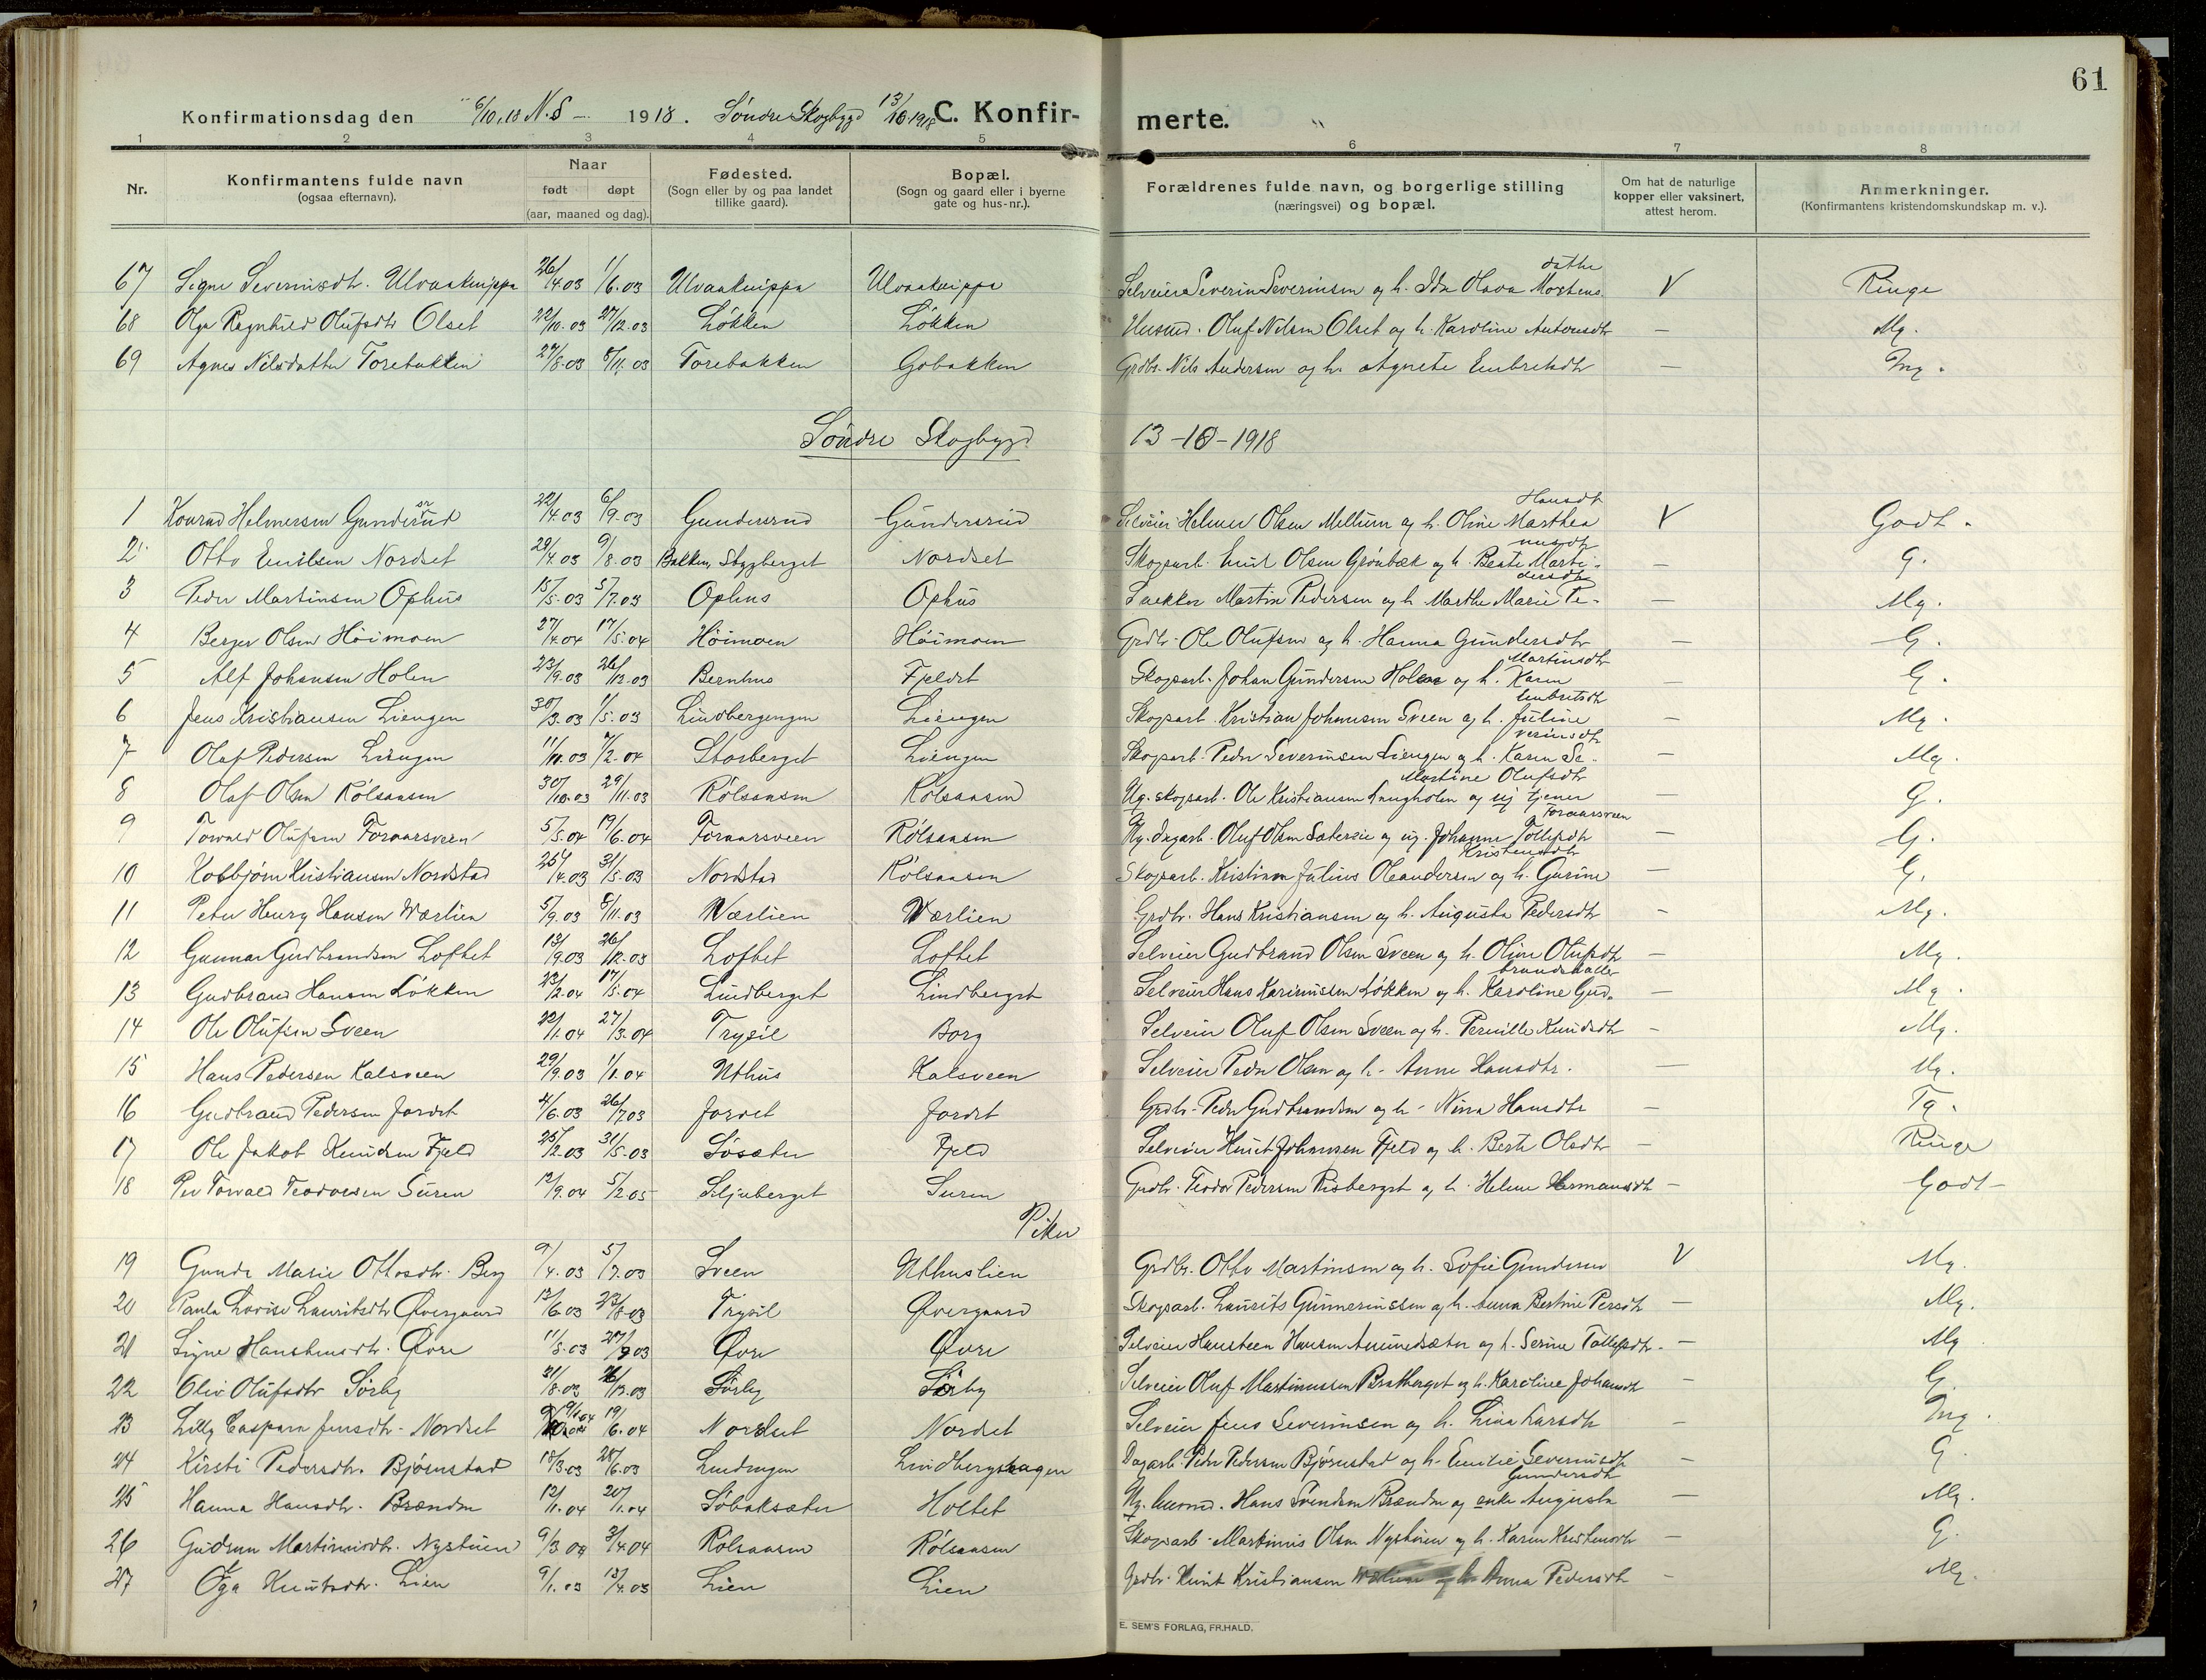 61
Konfirmationsdag den 6/10.18 N.S – 1918. Søndre Skogbygd 13/10.1918 C. Konfir- merte.
1 2 3 4 5 6 7 8
Nr. Konfirmantens fulde navn (ogsaa efternavn). Naar født døpt (aar, maaned og dag). Fødested. (Sogn eller by og paa landet tillike gaard). Bopæl. (Sogn og gaard eller i byerne gate og hus-nr.). Forældrenes fulde navn, og borgerlige stilling (næringsvei) og bopæl. Om hat de naturlige kopper eller vaksinert, attest herom. Anmerkninger. (Konfirmantens kristendomskundskap m. v.).
67 Signe Severinsdtr. Ulvaaknippa 26/4.03 1/6.03 Ulvaaknippa Ulvaaknippa Selveier Severin Severinsen og h. Ida Olava Mortens datter V Ringe
68 Olga Ragnhild Olufsdtr Olset 22/10.03 27/12.03 Løkken Løkken Husmd. Oluf Nilsen Olset og h. Karoline Antonsdtr — Mg.
69 Agnes Nilsdatter Torebakken 27/8.03 8/11.03 Torebakken Gobakken Grdbr. Nils Andersen og h. Agnete Embretsdtr — Mg.
Søndre Skogbygd 13-10-1918
1 Konrad Helmersen Gundersrud 22/4.03 6/9.03 Gundersrud Gundersrud Selveier Helmer Olsen Mellum og h. Oline Marthea Hansdtr V Godt.
2 Otto Emilsen Nordset 29/4.03 9/8.03 Bakken, Stygberget Nordset Skogsarb. Emil Olsen Grønbæk og h. Beate Marti- nusdtr — G.
3 Peder Martinsen Ophus 15/5.03 5/7.03 Ophus Ophus Martin Pedersen og h. Marthe Marie Pe- dersdtr — Mg.
4 Berger Olsen Høimoen 27/4.04 17/5.04 Høimoen Høimoen Grdbr. Ole Olufsen og h. Hanna Gundersdtr — G.
5 Alf Johansen Holen 23/9.03 26/12.03 Bernhus Fjeldet Skogsarb. Johan Gundersen Holen og h. Karen Martinsdtr — G.
6 Jens Kristiansen Liengen 30/3.03 1/5.03 Lindbergengen Liengen Skogsarb. Kristian Johansen Sveen og h. Juline Embretsdtr — Mg.
7 Olaf Pedersen Liengen 11/10.03 7/2.04 Storberget Liengen Skogsarb. Peder Severinsen Liengen og h. Karen Se- verinsdtr — Mg.
8 Olaf Olsen Rølsaasen 30/10.03 29/11.03 Rølsaasen Rølsaasen Ug. skogsarb. Ole Kristiansen og ug tjener Martine Olufsdtr — G.
9 Torvald Olufsen Foraarsveen 5/5.04 19/6.04 Foraarsveen Rølsaasen Ug. dagarb. Oluf Olsen og ug. Johanne Tollefsdtr Foraarsveen — G.
10 Kolbjørn Kristiansen Nordstad 25/4.03 31/5.03 Nordstad Rølsaasen Skogsarb. Kristian Julius Oleandersen og h. Gurine Kristensdtr — G.
11 Peter Henry Hansen Værlien 5/9.03 8/11.03 Værlien Værlien Grdbr. Hans Kristiansen og h. Augusta Pedersdtr — Mg.
12 Gunnar Gudbrandsen Loftet 13/9.03 26/12.03 Loftet Loftet Selveier Gudbrand Olsen Sveen og h. Oline Olufsdtr — Mg.
13 Gudbrand Hansen Løkken 23/2.04 17/5.04 Lindberget Lindberget Selveier Hans Karinussen Løkken og h. Karoline Gud- brandsdatter — Mg.
14 Ole Olufsen Sveen 22/1.04 27/3.04 Trysil Borg Selveier Oluf Olsen Sveen og h. Pernille Knudsdtr — Mg.
15 Hans Pedersen Kalsveen 29/9.03 1/1.04 Uthus Kalsveen Selveier Peder Olsen og h. Anne Hansdtr. — Mg.
16 Gudbrand Pedersen Jordet 4/6.03 26/7.03 Jordet Jordet Grdbr. Peder Gudbrandsen og h. Nina Hansdtr — Tg.
17 Ole Jakob Knudsen Fjeld 25/2.03 31/5.03 Søsæter Fjeld Selveier Knut Johansen Fjeld og h. Berte Olsdtr — Ringe
18 Per Torvald Teodorsen Suren 12/9.04 5/2.05 Siljuberget Suren Grdbr. Teodor Pedersen Risberget og h. Helene Hermansdtr — Godt –
Piker
19 Gunda Marie Ottosdtr. Berg 9/4.03 5/7.03 Sveen Uthuslien Grdbr. Otto Martinsen og h. Sofie Gundersen V Mg.
20 Paula Lovise Lauritsdtr Øvergaard 12/6.03 23/8.03 Trysil Øvergaard Skogsarb. Laurits Gunneriussen og h. Anna Bertine Persdtr — Mg.
21 Signe Hanstensdtr. Øvre 11/5.03 27/9.03 Øvre Øvre Selveier Hansteen Hansen og h. Serine Tollefsdtr. — Mg
22 Oliv Olufsdtr Sørby 31/8.03 26/12.03 Sørby Sørby Selveier Oluf Martinussen Bratberget og h. Karoline Johansdtr — G.
23 Lilly Caspara Jensdtr. Nordset 9/1.04 19/6.04 Nordset Nordset Selveier Jens Severinsen og h. Lina Larsdtr — Mg.
24 Kirsti Pedersdtr. Bjørnstad 18/3.03 28/6.03 Lindengen Lindberghagen Dagarb. Peder Pedersen Bjørnstad og h. Emilie Severinsdtr — G.
25 Hanna Hansdtr. Brænden 12/1.04 20/1.04 Søbaksæter Holtet Ug. Hans Svendsen Brænden og enke Augusta Gundersdtr — Mg.
26 Gudrun Martinusdtr. Nystuen 9/3.04 3/4.04 Rølsaasen Rølsaasen Skogsarb. Martinus Olsen Nystuen og h. Karen Kristensdtr — G.
27 Oga Knutsdtr. Lien 9/1.03 13/4.03 Lien Lien Grdbr. Knut Kristiansen og h. Anna Pedersdtr — Mg.
E. SEM'S FORLAG, FR.HALD.